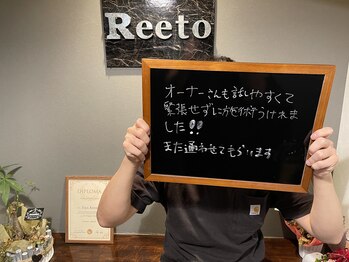 Reeto
オーナーさんも話しやすくて
緊張せずに施術うけれま
した!!
また通わせてもらいます
DIPLOMA